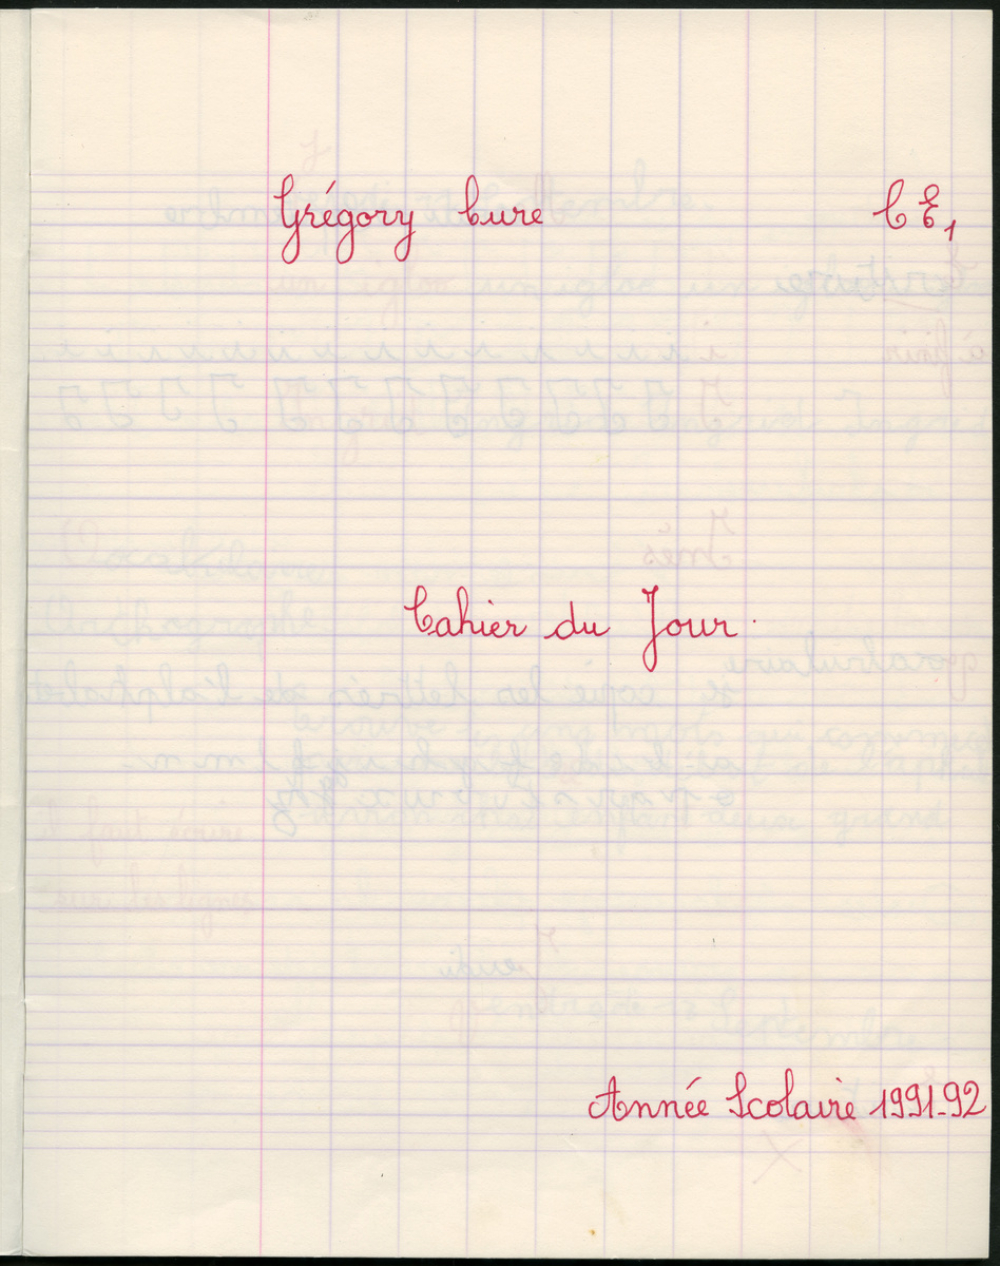 Grégory Cure CE1
Cahier du Jour.
Année Scolaire 1991-92